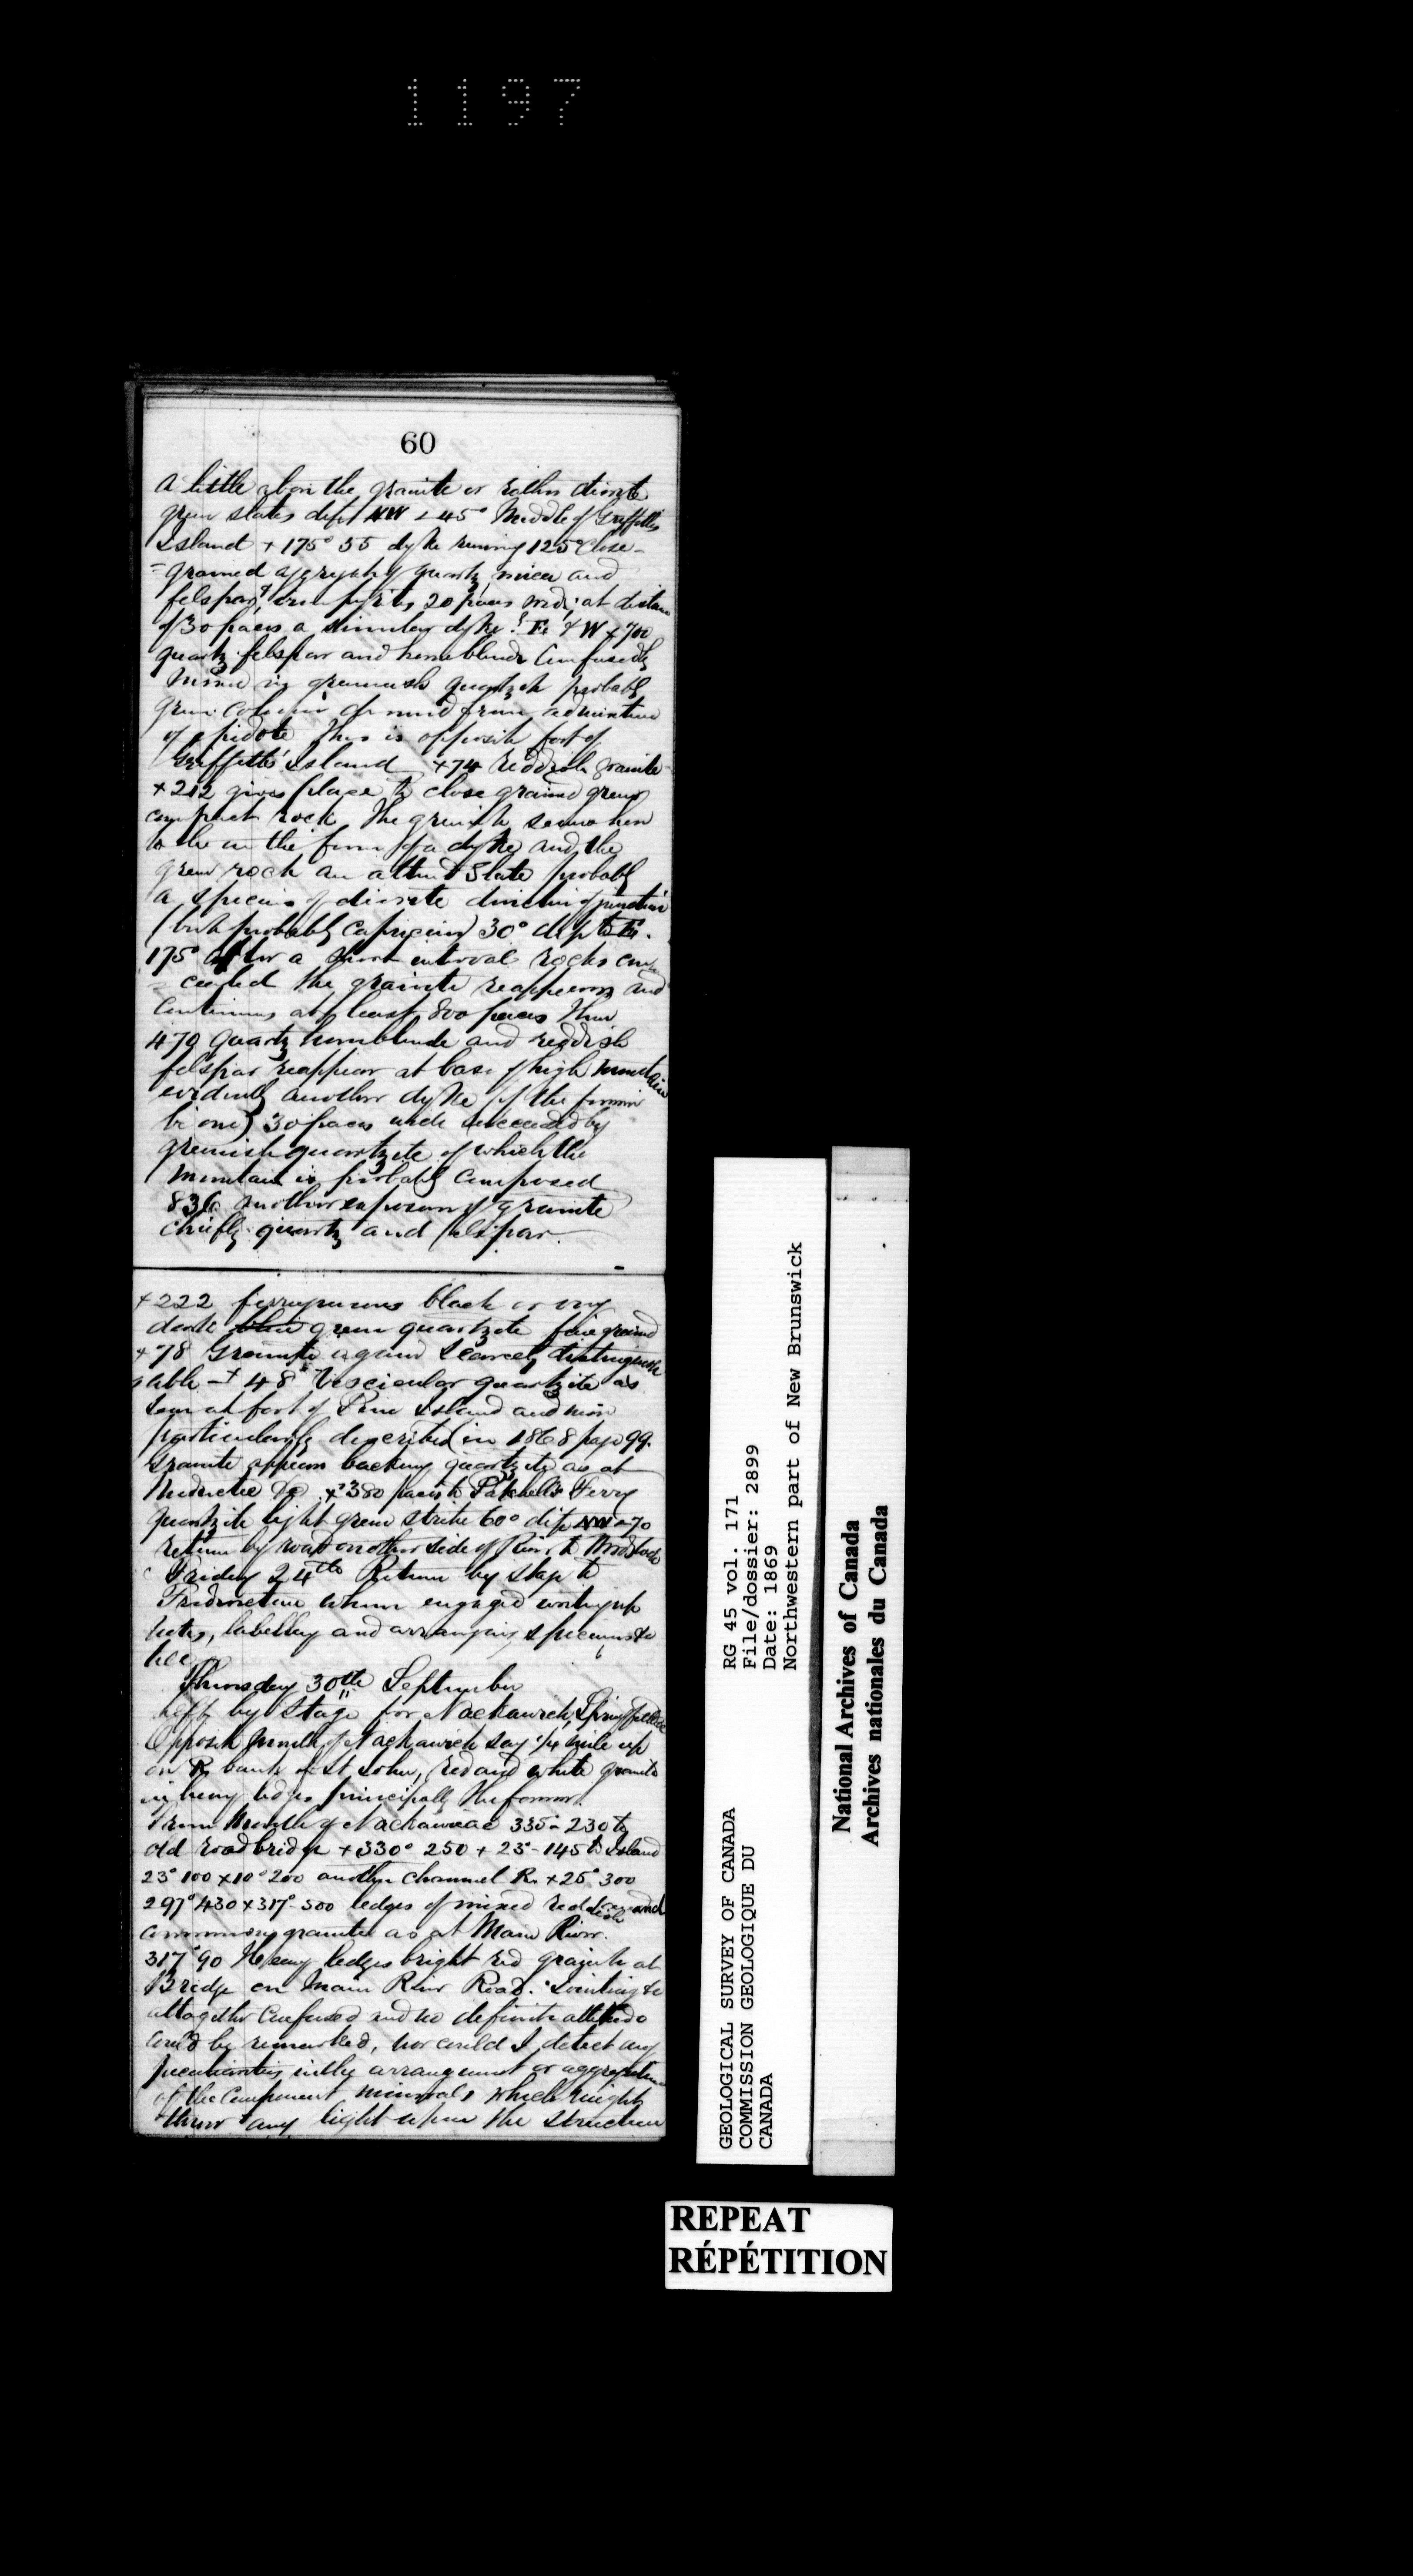 1197
60
A little above the granite or rather diorite
green slates dip NW < 45° Middle of Griffith's
Island + 175° 55 dyke running 125° Close-
=grained aggregate of quartz, mica and
felspar, iron pyrites 20 paces wide; at distance
of 30 paces a similar dyke? E & W + 700
quartz felspar and hornblende confusedly
mixed in greenish quartzite probably
green colour derived from admixture
of epidote This is opposite foot of
Griffith's Island + 74 reddish granite
+ 212 gives place to close grained green
compact rock The granite seems here
to be in the form of a dyke and the
green rock an altered slate probably
a species of diorite direction of junction
(but probably capricious) 30° dip to
175° after a short interval rocks con-
=cealed the granite reappears and
continues at least 800 paces Then
470 quartz hornblende and reddish
felspar reappear at base of high mountain
evidently another dyke (if the former
be one) 30 paces wide succeeded by
greenish quartzite of which the
mountain is probably composed
836 another exposure of granite
chiefly quartz and felspar.
+222 ferruginous black or very
dark blue green quartzite fine grained
+ 78 Granite again scarcely distinguish
able - + 48 Vescicular quartzite as
seen at foot of Pine Island and more
particularly described in 1868 page 99.
Granite appears backing quartzite as at
Meductic &c + 380 paces to Patchell's Ferry
quartzite light green strike 60° dip NW < 70
return by road on other side of River to Woodstock
Friday 24th Return by stage to
Fredericton where engaged writing up
notes, labelling and arranging specimens &c
&c
Thursday 30th September
left by Stage for Nackawick, Springfield &c
Opposite mouth of Nackawick say 1/4 mile up
on R bank of St John, red and white granite
in heavy ledges principally the former.
From Mouth of Nackawick 335° - 230 to
old road bridge + 330° 250 + 23° - 145 to Island
23° 100 + 10° 200 another channel R. + 25° 300
297° 430 + 317° 500 ledges of mixed reddish and
common grey granite as at Main River.
317° 90 Heavy ledges bright red granite at
Bridge on Main River Road. Jointing &c
altogether confused and no definite attitude
could be remarked, nor could I detect any
peculiarities in the arrangement or aggregation
of the component minerals which might
throw any light upon the structure
GEOLOGICAL SURVEY OF CANADA
COMMISSION GEOLOGIQUE DU
CANADA
RG 45 vol. 171
File/dossier: 2899
Date: 1869
Northwestern part of New Brunswick
National Archives of Canada
Archives nationales du Canada
REPEAT
RÉPÉTITION